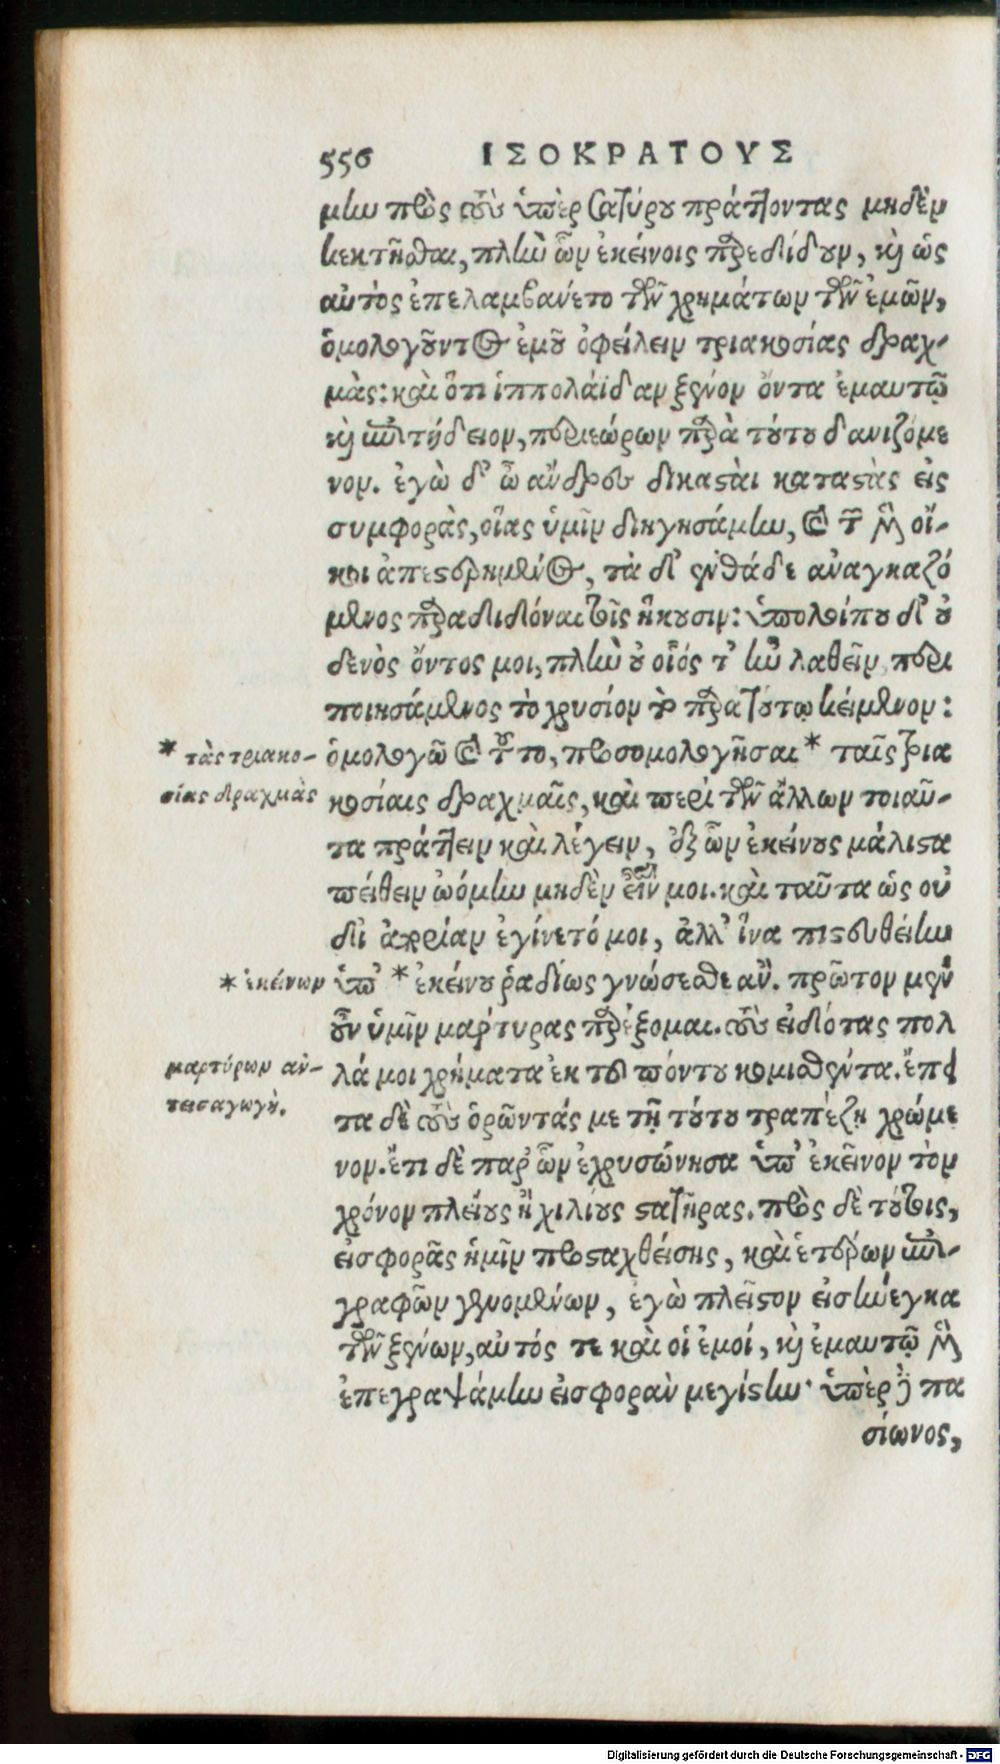 556 ΙΣΟΚΡΑΤΟΥΣ
μην πρὸς τοὺς ὑπὲρ Σατύρου πράττοντας μηδὲν
κεκτῆσθαι, πλὴν ὧν ἐκείνοις παρεδίδουν, καὶ ὡς
αὐτὸς ἐπελαμβάνετο τῶν χρημάτων τῶν ἐμῶν,
ὁμολογοῦντος ἐμοῦ ὀφείλειν τριακοσίας δραχ-
μὰς: καὶ ὅτι ἱππολαΐδαν ξένον ὄντα ἐμαυτῷ
καὶ ἐπιτήδειον, περιεώρων παρὰ τούτου δανιζόμε
νον. ἐγὼ δ' ὦ ἄνδρες δικασταὶ καταστὰς εἰς
συμφορὰς, οἵας ὑμῖν διηγησάμην, καὶ τῶν μὲν οἴ-
κοι ἀπεστερημένος, τὰ δ' ἐνθάδε ἀναγκαζό
μενος παραδιδόναι τοῖς ἥκουσιν: ὑπολοίπου δ' οὐ
δενὸς ὄντος μοι, πλὴν οὐ οἷός τ' ἦν λαθεῖν περι
ποιησάμενος τὸ χρυσίον τὸ παρὰ τούτῳ κείμενον:
* τὰς τριακο- ὁμολογῶ καὶ τοῦτο, προσομολογῆσαι * ταῖς τρια
σίας δραχμὰς κοσίαις δραχμαῖς, καὶ περὶ τῶν ἄλλων τοιαῦ-
τα πράττειν καὶ λέγειν, ἐξ ὧν ἐκείνους μάλιστα
πείθειν ᾠόμην μηδὲν εἶναι μοι. καὶ ταῦτα ὡς οὐ
δι' ἀπορίαν ἐγίνετό μοι, ἀλλ' ἵνα πιστευθείην
* ἐκείνων ὑπ' * ἐκείνου ῥαδίως γνώσεσθε ἄν. πρῶτον μὲν
οὖν ὑμῖν μάρτυρας παρέξομαι. τοὺς εἰδότας πολ
μαρτύρων ἀν- λά μοι χρήματα ἐκ τοῦ πόντου κομισθέντα. ἔπει
τεισαγωγὴ. τα δὲ τοὺς ὁρῶντάς με τῇ τούτου τραπέζῃ χρώμε
νον. ἔτι δὲ παρ' ὧν ἐχρυσώνησα ὑπ' ἐκεῖνον τὸν
χρόνον πλείους ἢ χιλίους στατῆρας. πρὸς δὲ τούτοις,
εἰσφορᾶς ἡμῖν προσταχθείσης, καὶ ἑτέρων ἐπι-
γραφῶν γενομένων, ἐγὼ πλεῖστον εἰσήνεγκα
τῶν ξένων, αὐτός τε καὶ οἱ ἐμοί, καὶ ἐμαυτῷ μὲν
ἐπεγραψάμην εἰσφορὰν μεγίστην· ὑπὲρ δὲ πα
σίωνος,
Digitalisierung gefördert durch die Deutsche Forschungsgemeinschaft - DFG